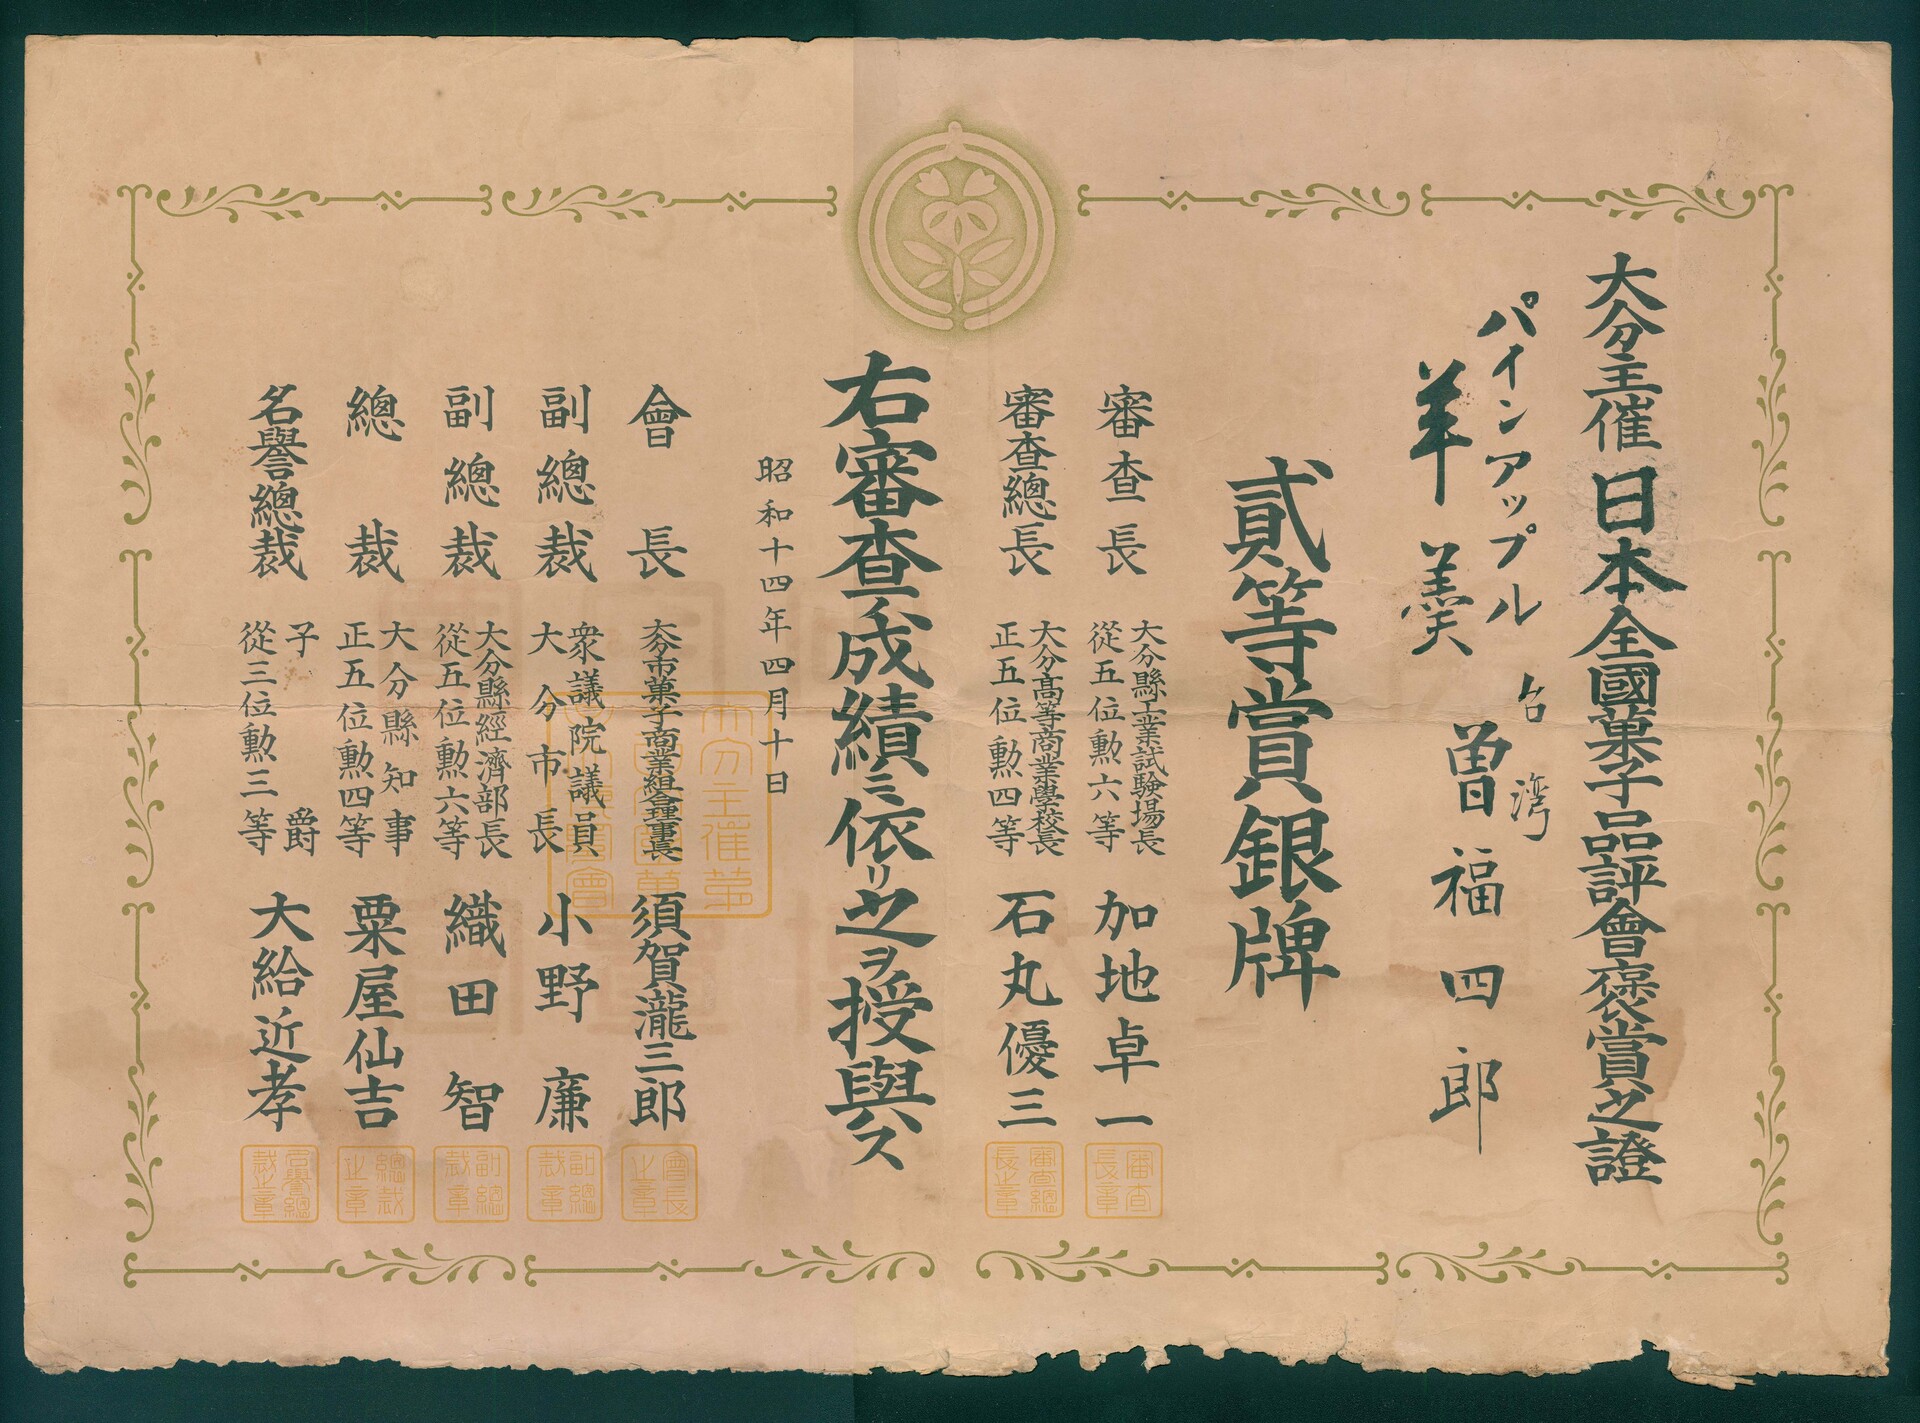 大分主催日本全國菓子品評會褒賞之證
パインアップル
羊羹
台灣
曾福四郎
貳等賞銀牌
審查長
大分縣工業試驗場長
從五位勲六等
加地卓一
審查總長
大分高等商業學校長
正五位勲四等
石丸優三
右審查ノ成績ニ依リ之ヲ授與ス
昭和十四年四月十日
會長
大分市菓子商業組合理事長
須賀瀧三郎
副總裁
衆議院議員
大分市長
小野廉
副總裁
大分縣經濟部長
從五位勲六等
織田智
總裁
大分縣知事
正五位勲四等
粟屋仙吉
名譽總裁
子爵
從三位勲三等
大給近孝
審查長章
審查總長之章
會長之章
副總裁章
副總裁章
總裁之章
名譽總裁之章